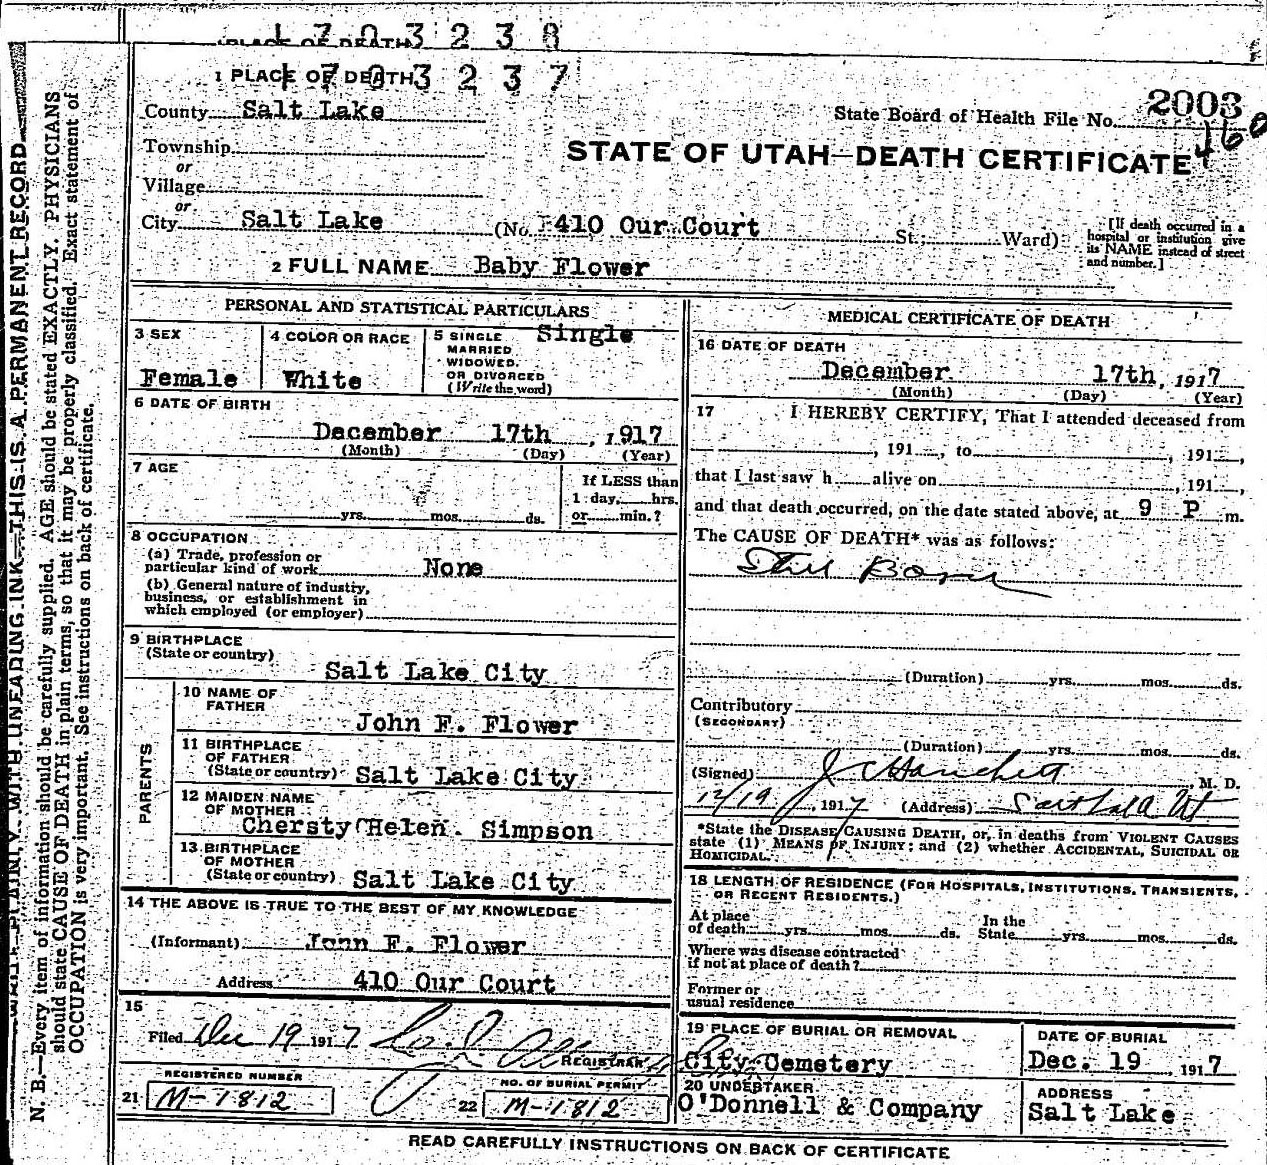 1 7 0 3 2 3 8
PLACE OF DEATH
1 7 0 3 2 3 7
1 PLACE OF DEATH
County Salt Lake
State Board of Health File No. 2003
460
Township
or
Village
or
City Salt Lake (No. 410 Our Court St.; Ward)
STATE OF UTAH—DEATH CERTIFICATE
[If death occurred in a
hospital or institution give
its NAME instead of street
and number.]
2 FULL NAME Baby Flower
PERSONAL AND STATISTICAL PARTICULARS
3 SEX
Female
4 COLOR OR RACE
White
5 SINGLE Single
MARRIED
WIDOWED.
OR DIVORCED
(Write the word)
6 DATE OF BIRTH
December 17th, 1917
(Month) (Day) (Year)
7 AGE
yrs. mos. ds.
If LESS than
1 day, hrs.
or min.?
8 OCCUPATION
(a) Trade, profession or
particular kind of work None
(b) General nature of industry,
business, or establishment in
which employed (or employer)
9 BIRTHPLACE
(State or country)
Salt Lake City
PARENTS
10 NAME OF
FATHER
John F. Flower
11 BIRTHPLACE
OF FATHER
(State or country) Salt Lake City
12 MAIDEN NAME
OF MOTHER
Chersty Helen. Simpson
13 BIRTHPLACE
OF MOTHER
(State or country) Salt Lake City
14 THE ABOVE IS TRUE TO THE BEST OF MY KNOWLEDGE
(Informant) John F. Flower
Address 410 Our Court
15
Filed Dec 19 1917
REGISTRAR
REGISTERED NUMBER
21 M-1812
NO. OF BURIAL PERMIT
22 M-1812
MEDICAL CERTIFICATE OF DEATH
16 DATE OF DEATH
December 17th, 1917
(Month) (Day) (Year)
17 I HEREBY CERTIFY, That I attended deceased from
, 191 , to , 191 ,
that I last saw h alive on , 191 ,
and that death occurred, on the date stated above, at 9 P m.
The CAUSE OF DEATH* was as follows:
Still Born
(Duration) yrs. mos. ds.
Contributory
(SECONDARY)
(Duration) yrs. mos. ds.
(Signed) J C Hanchett, M. D.
12/19, 1917 (Address) Ut
*State the DISEASE CAUSING DEATH, or, in deaths from VIOLENT CAUSES
state (1) MEANS OF INJURY; and (2) whether ACCIDENTAL, SUICIDAL OR
HOMICIDAL.
18 LENGTH OF RESIDENCE (FOR HOSPITALS, INSTITUTIONS, TRANSIENTS,
OR RECENT RESIDENTS.)
At place
of death yrs. mos. ds.
In the
State yrs. mos. ds.
Where was disease contracted
if not at place of death?
Former or
usual residence
19 PLACE OF BURIAL OR REMOVAL
City Cemetery
DATE OF BURIAL
Dec. 19, 1917
20 UNDERTAKER
O'Donnell & Company
ADDRESS
Salt Lake
READ CAREFULLY INSTRUCTIONS ON BACK OF CERTIFICATE
WRITE PLAINLY WITH UNFADING INK—THIS IS A PERMANENT RECORD
N. B.—Every item of information should be carefully supplied. AGE should be stated EXACTLY. PHYSICIANS
should state CAUSE OF DEATH in plain terms, so that it may be properly classified. Exact statement of
OCCUPATION is very important. See instructions on back of certificate.